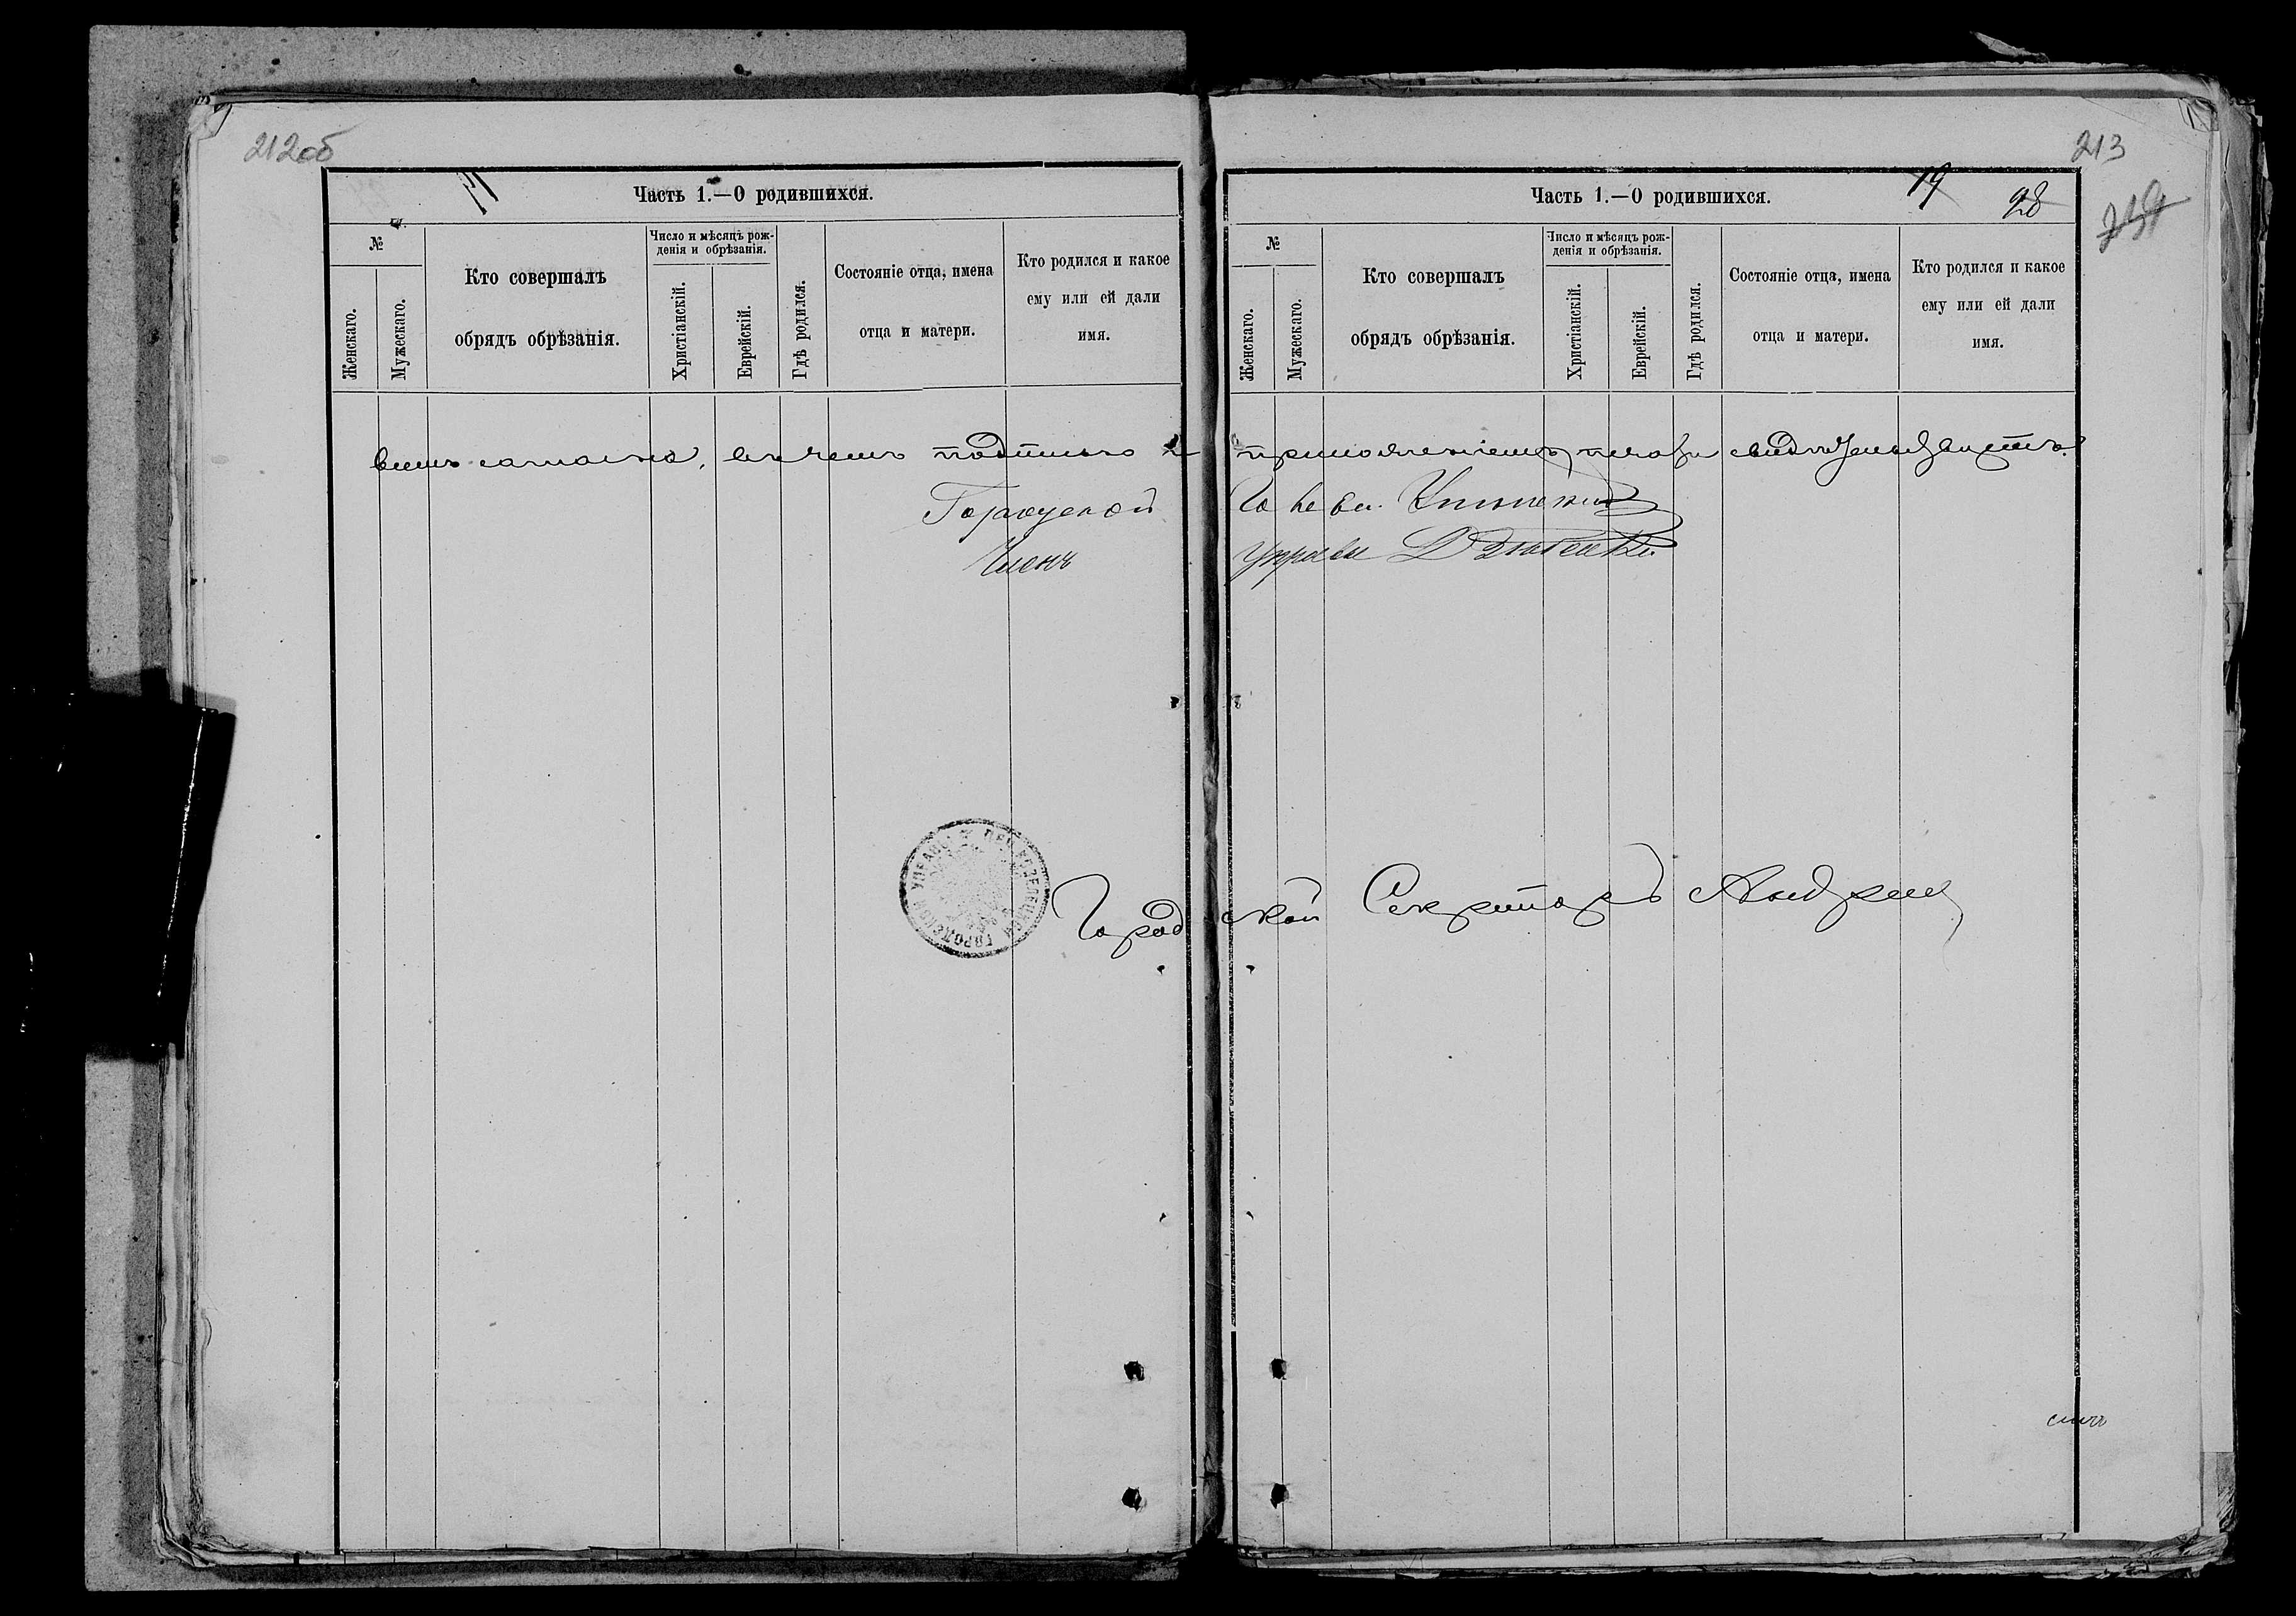 212об
Часть 1.—О родившихся.
№
Женскаго.
Мужескаго.
Кто совершалъ
обрядъ обрѣзанія.
Число и мѣсяцъ рож-
денія и обрѣзанія.
Христіанскій.
Еврейскій.
Гдѣ родился.
Состояніе отца, имена
отца и матери.
Кто родился и какое
ему или ей дали
имя.
213
19
28
Часть 1.—О родившихся.
№
Женскаго.
Мужескаго.
Кто совершалъ
обрядъ обрѣзанія.
Число и мѣсяцъ рож-
денія и обрѣзанія.
Христіанскій.
Еврейскій.
Гдѣ родился.
Состояніе отца, имена
отца и матери.
Кто родился и какое
ему или ей дали
имя.
въ чемъ подписью и приложеніемъ печати свидѣтельствуетъ.
Городской Голова
Членъ Управы
Городской Секретарь